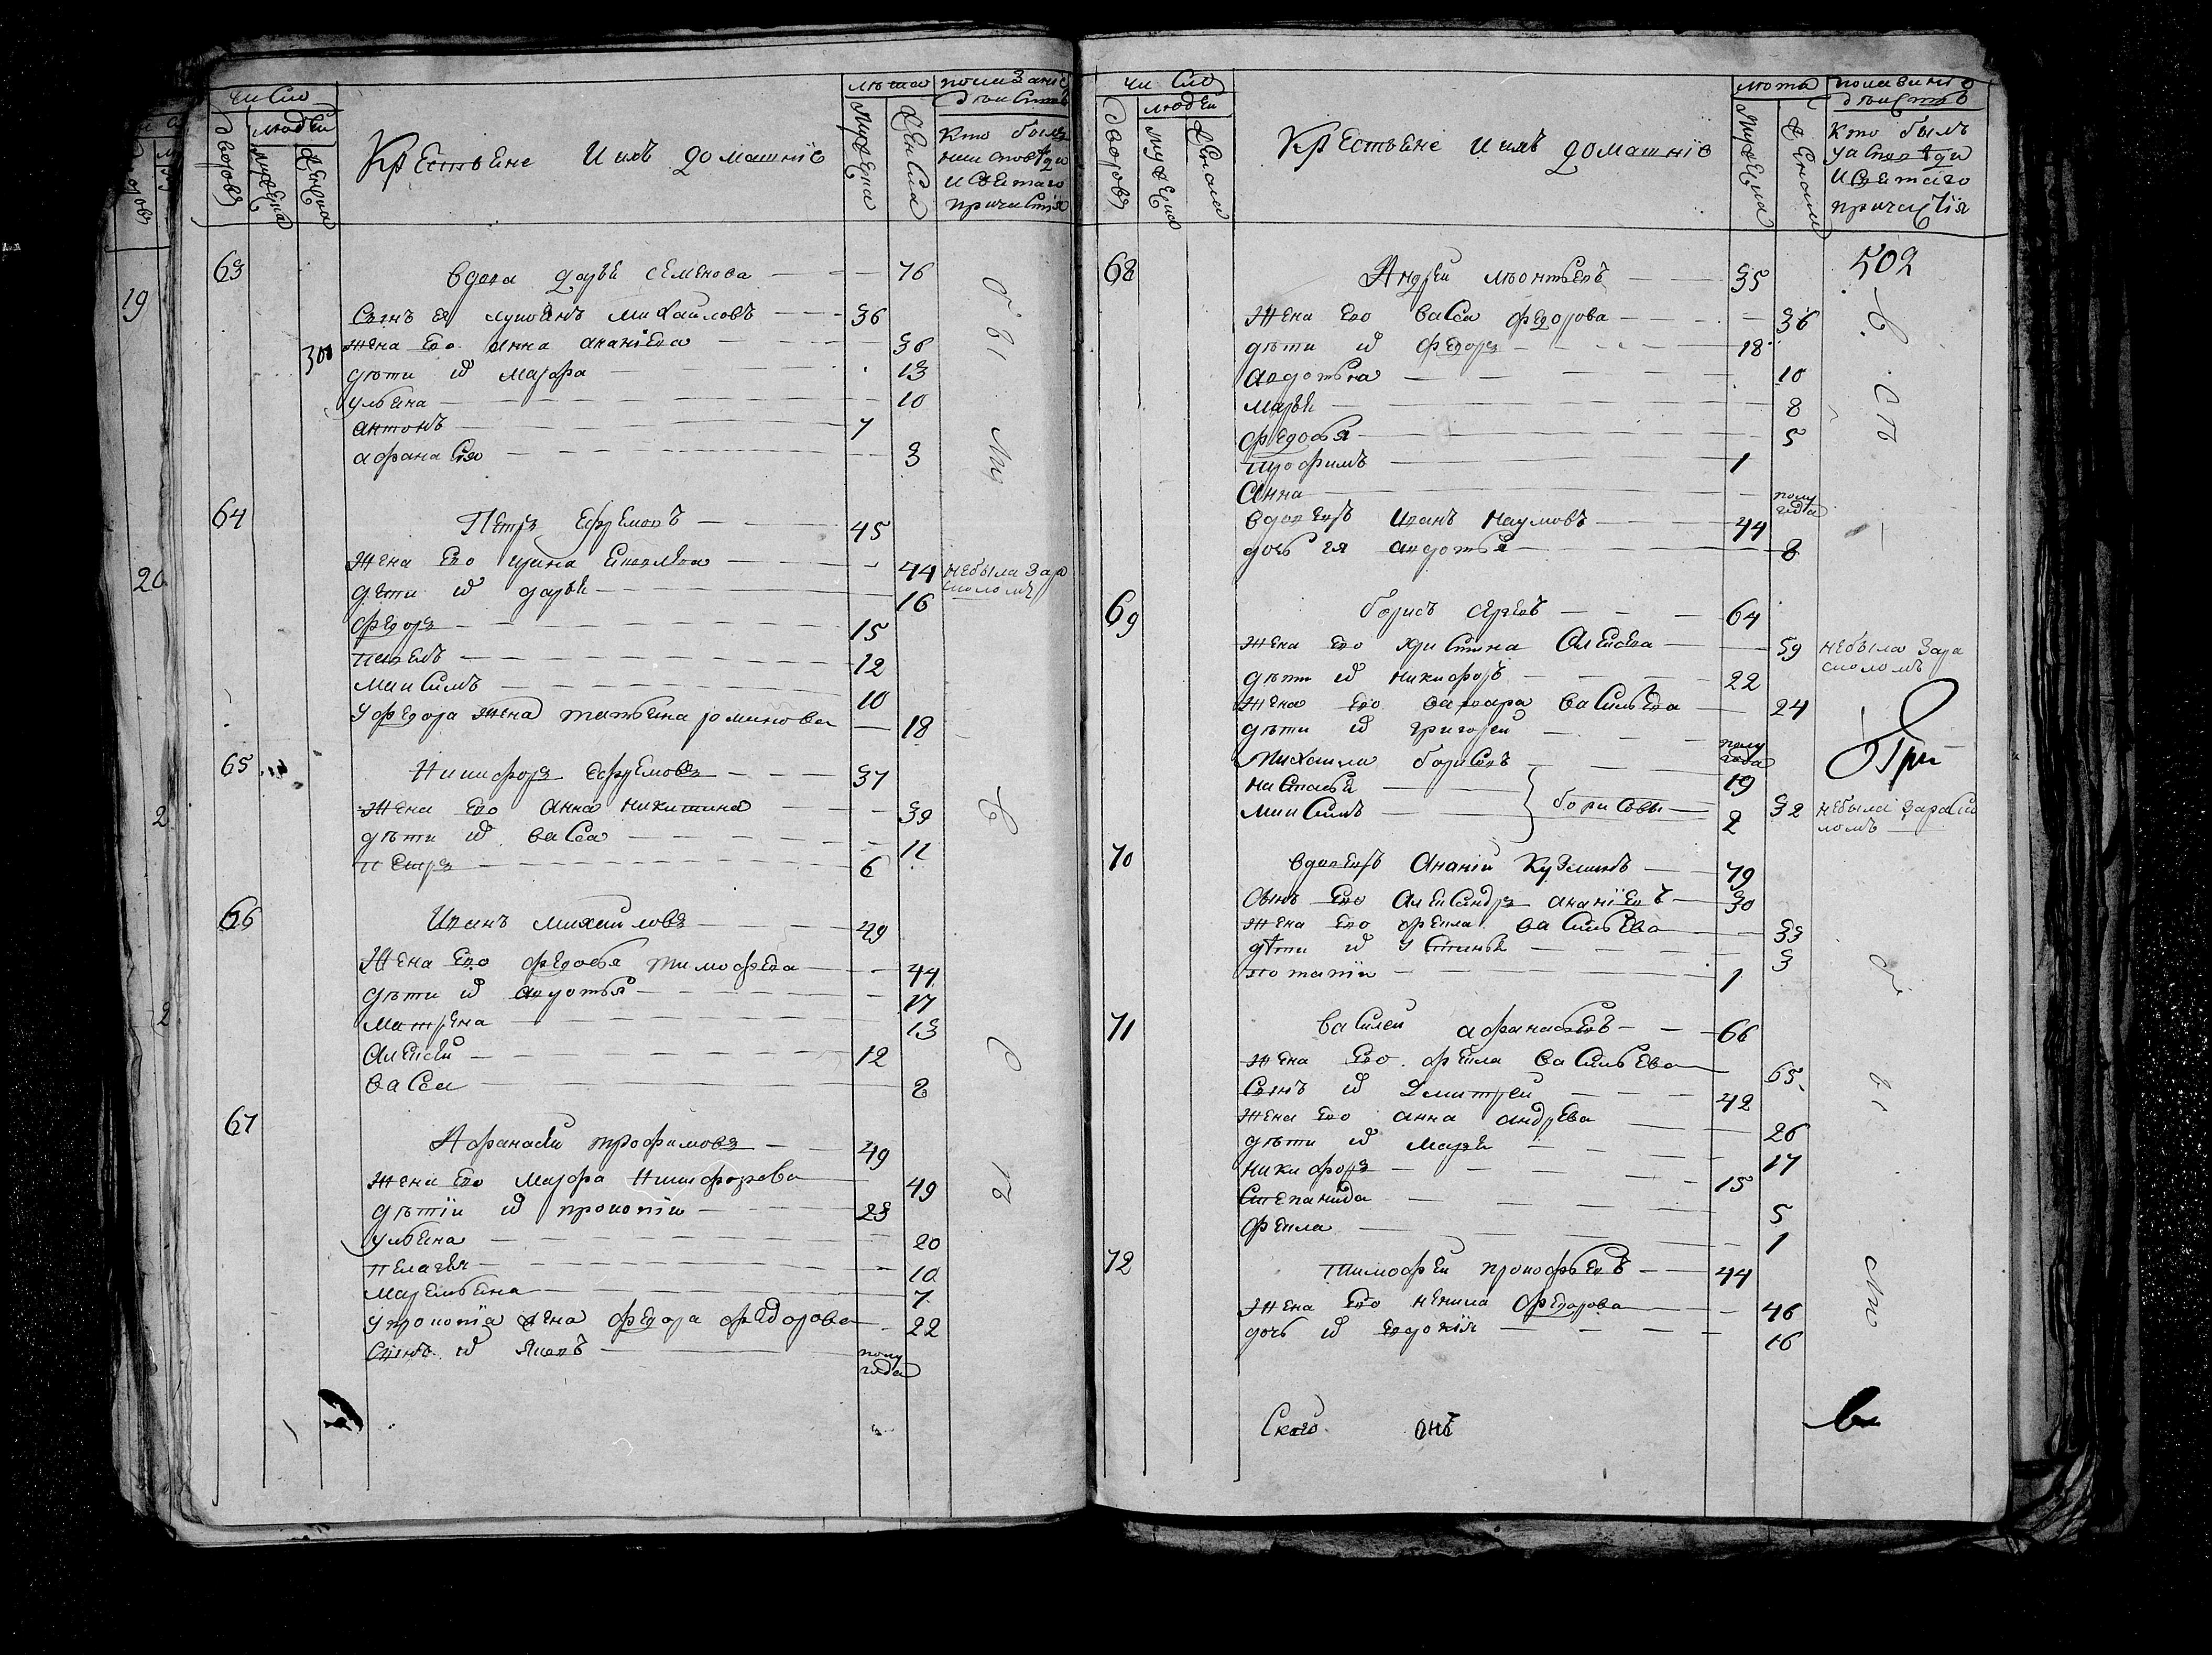 число
людей
дворовъ
мужеска
женска
Крестьене и ихъ домашніе
лѣта
мужеска
женска
показаніе
действъ
кто былъ
на исповѣди
и святаго
причастія
63 вдова дарьи семенова 76
Сынъ ея лукьянъ михаиловъ 36
жена его анна ананіева 36
дѣти их марфа 13
ульена 10
антонъ 7
афанасія 3
64 Петръ ефремовъ 45
жена его ирина 44 небыла зара
сколомъ
дети их дарьи 16
федоръ 15
павелъ 12
максимъ 10
у федора жена татьена 18
65 Никифоръ ефремовъ 37
жена его анна никитина 39
дѣти их васса 11
петръ 6
66 Иванъ михаиловъ 49
Жена его федосья тимофева 44
дѣти их авдотья 17
матрена 13
Алексей 12
васса 2
67 Афанасеи трофимовъ 49
жена его марфа Никифорова 49
дѣтіи их прокопіи 23
ульена 20
пелагея 10
маремьена 7
у прокопія жена федора федорова 22
Сынъ их яковъ полу
года
19
20
2
2
300
число
людей
дворовъ
мужеска
женска
Крестьене и ихъ домашніе
лѣта
мужеска
женска
показаніе
действъ
кто былъ
у исповѣди
и святаго
причастія
502
68 Андреи леонтьевъ 35
Жена его васса федорова 36
дѣти их федоръ 18
авдотья 10
марьи 8
федосья 5
трофимъ 1
Анна полу
года
вдовецъ иванъ наумовъ 44
дочь ея авдотья 8
69 борисъ 64
жена его христина Алексева 59 небыла зара
сколомъ
дѣти их никифоръ 22
жена его варвара васильева 24
дѣти их григореи полу
года
Михаила борисовъ 19
настасьи борисовы 32 небыла зараско
ломъ
максимъ 2
70 вдовецъ Ананіи Кузминъ 79
Сынъ его Александръ ананіевъ 30
жена его фекла васильева 33
дѣти их устиньи 3
потапіи 1
71 василеи афанасьевъ 66
жена его фекла васильева 65
Сынъ их Дмитреи 42
жена его анна андрева 26
дѣти их марьи 17
никифоръ 15
Степанида 5
фекла 1
72 тимофеи прокофьевъ 44
Жена его ненила федорова 46
дочь их евдокія 16
Ского онъ